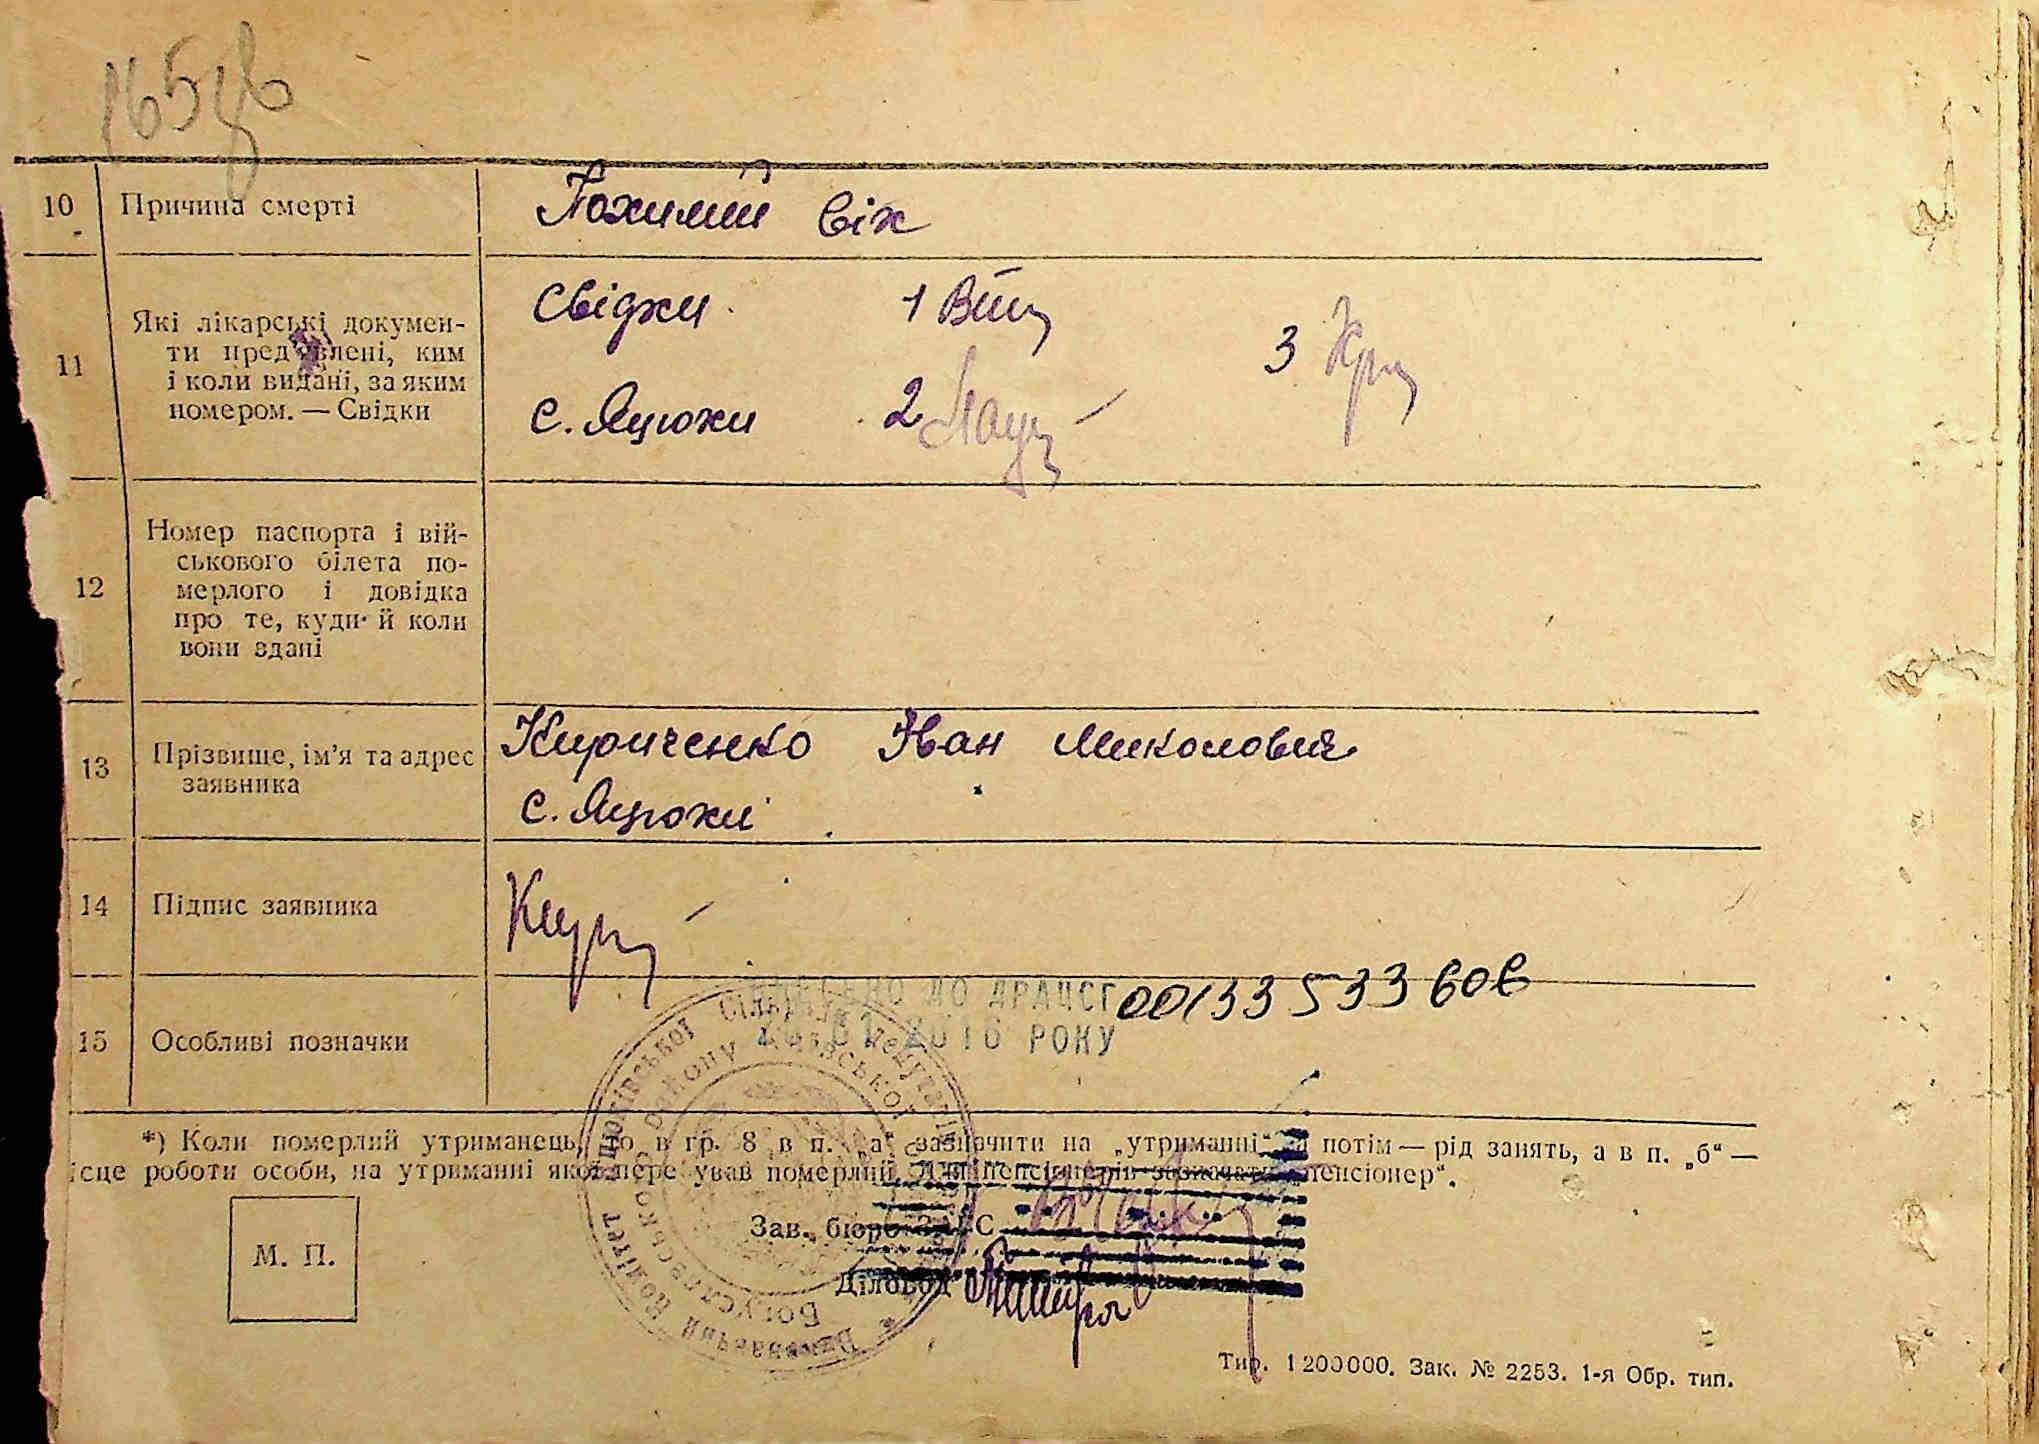 165зв
10 Причина смерті Похилий вік
11 Які лікарські докумен-
ти пред'явлені, ким
і коли видані, за яким
номером. — Свідки
Свідки 1
3
с. Яцюки 2
12 Номер паспорта і вій-
ськового білета по-
мерлого і довідка
про те, куди й коли
вони здані
13 Прізвище, ім'я та адрес
заявника
Кириченко Іван Миколович
с. Яцюки
14 Підпис заявника
15 Особливі позначки
ДО ДРАЦСГ 00133533606
2016 РОКУ
*) Коли померлий утриманець, то в гр. 8 в п. „а“ зазначити на „утриманні“ а потім — рід занять, а в п. „б“ —
ісце роботи особи, на утриманні якої перебував померлий. Для пенсіонерів зазначати „пенсіонер“.
М. П.
Зав. бюро ЗАГС
Діловод
Тир. 1200000. Зак. № 2253. 1-я Обр. тип.